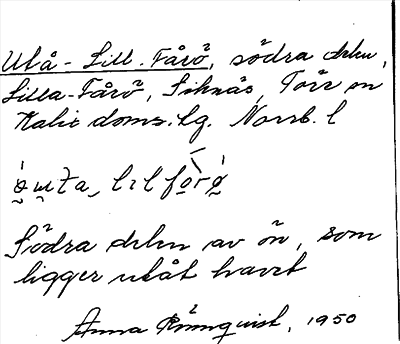 Utå-Lill-Fårö, södra delen,
Lilla-Fårö, Siknäs, Töre sn
Kalix doms.lg. Norrb. l
Södra delen av ön, som
ligger utåt havet
Anna Rönnquist, 1950